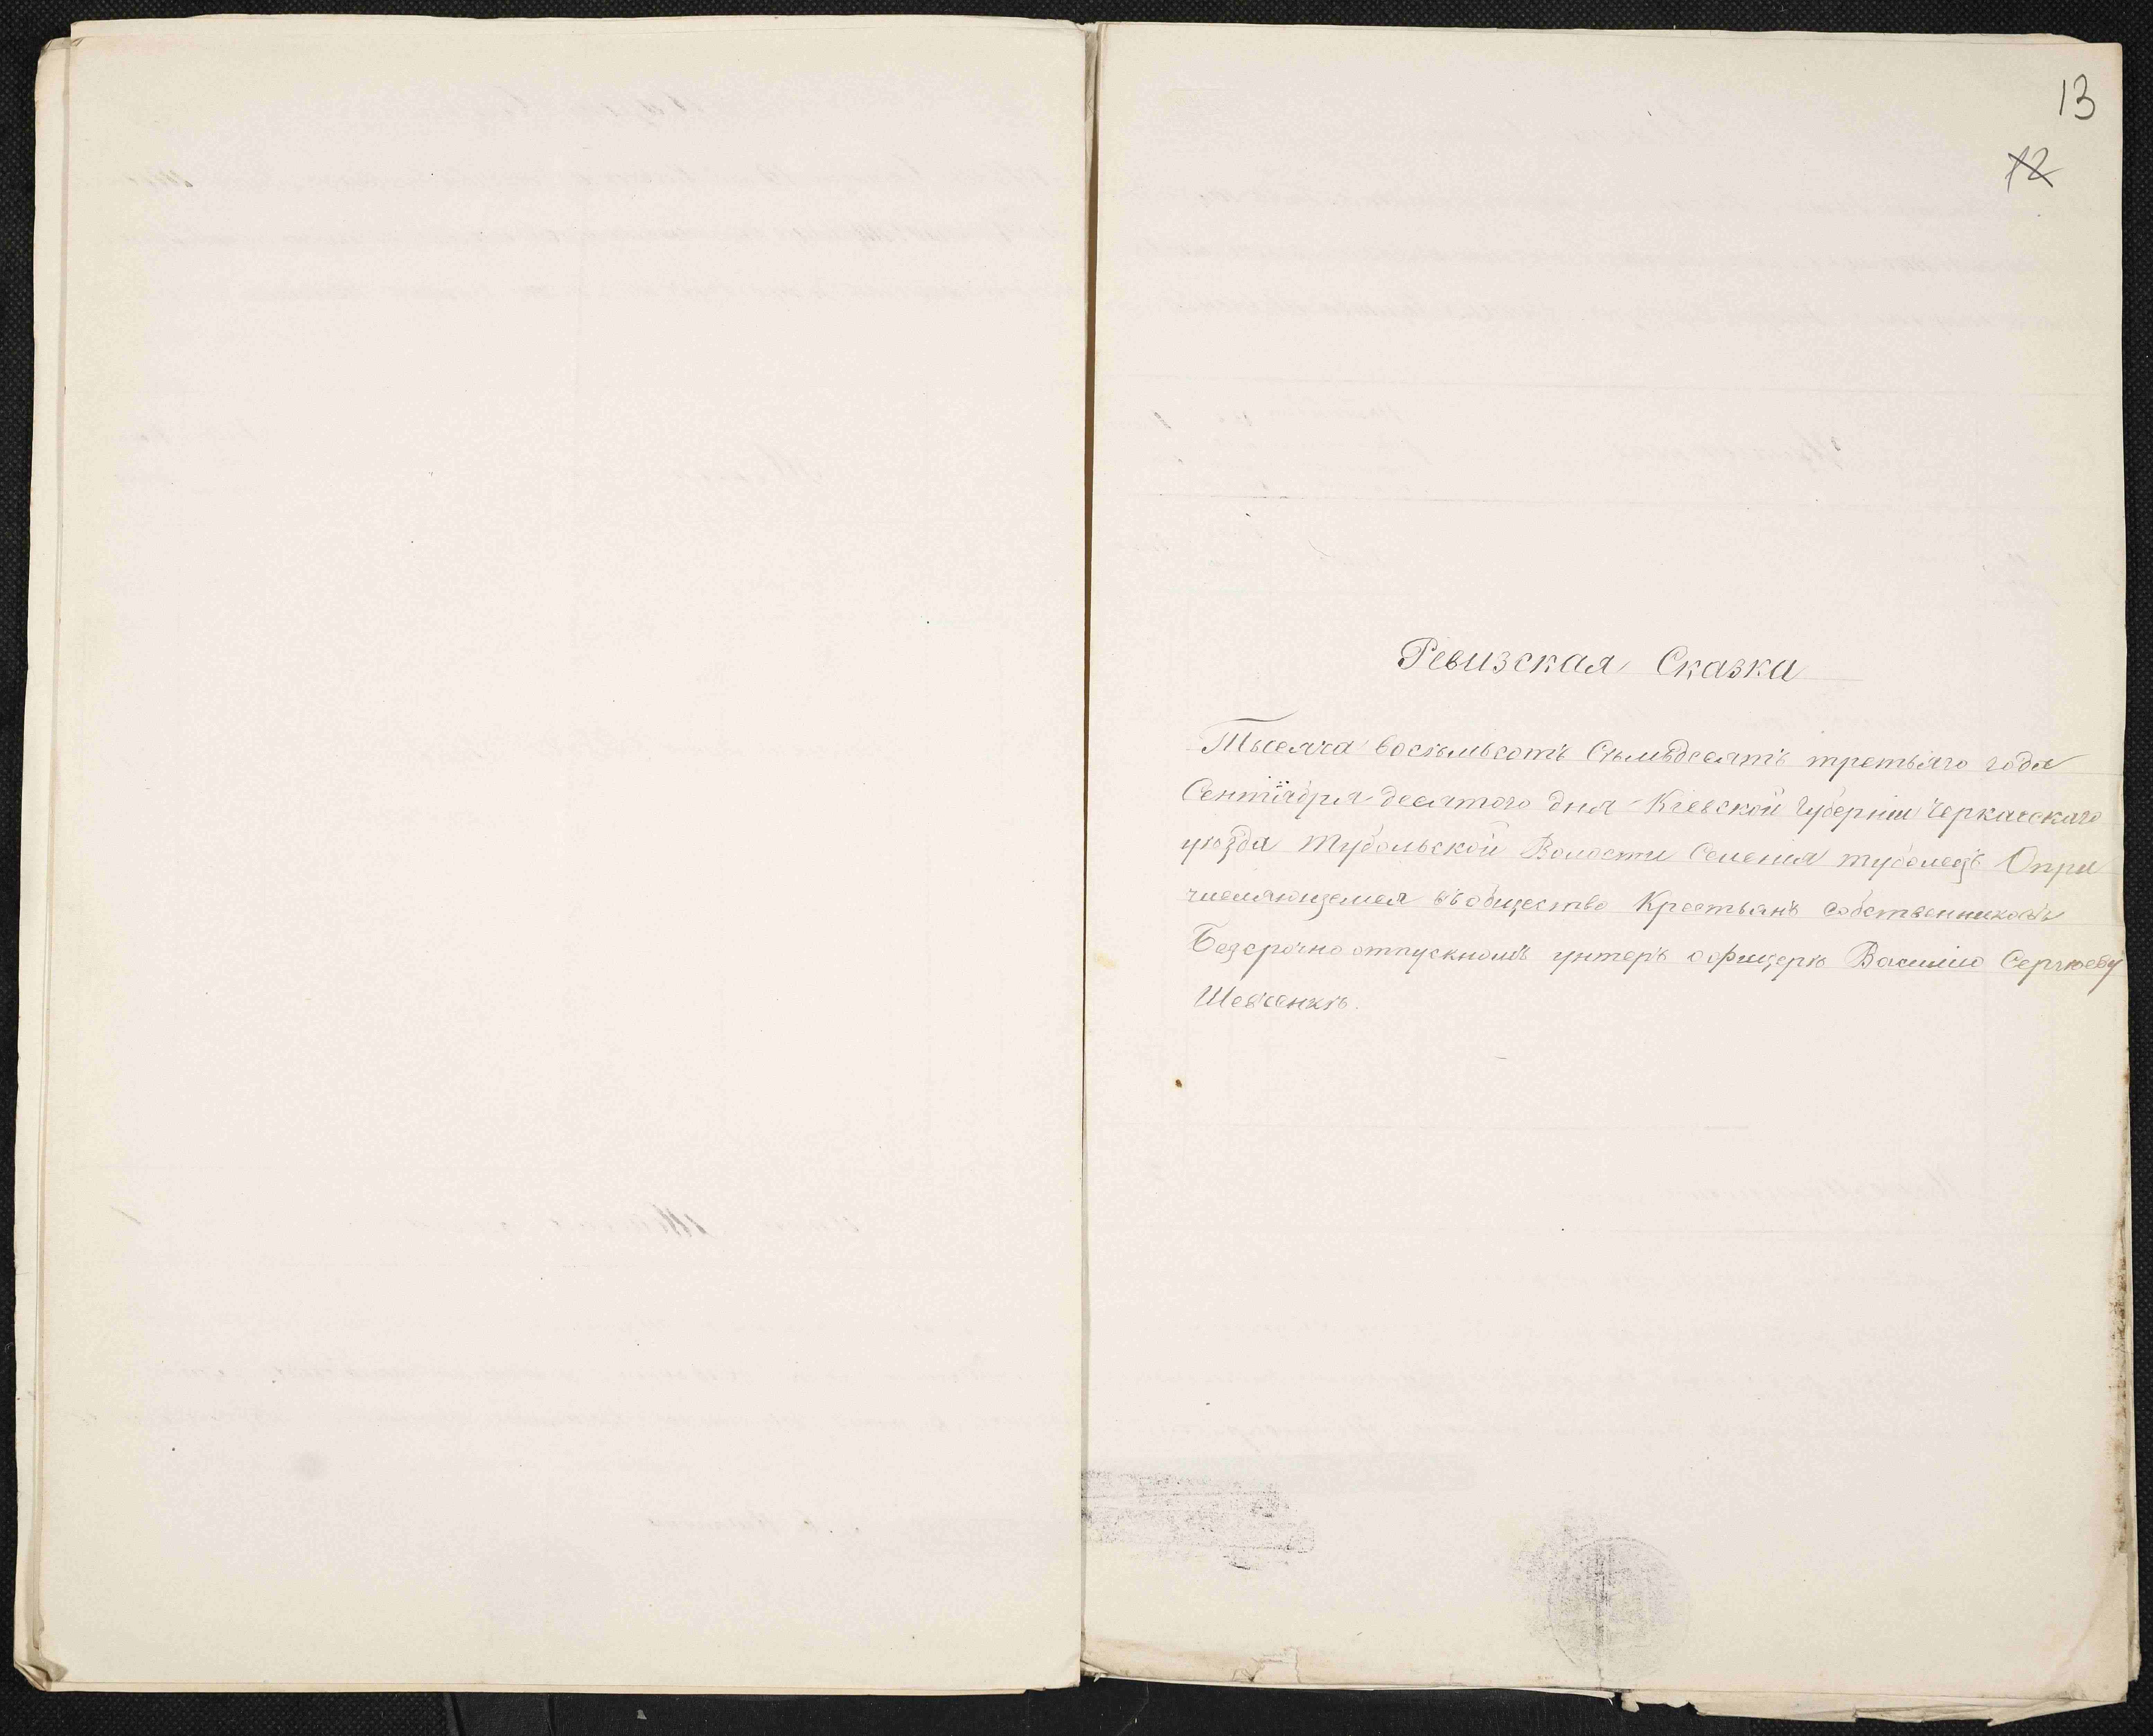 13
12
Ревизская Сказка
Тысяча восѣмьсотъ Сѣмьдесятъ третьяго года
Сентября десятого дня Кіевской Губерніи Черкасскаго
уѣзда Тубольской Волости Селенія туболецъ Опри
числяющемся въ общество Крестьянъ собственниковъ
Безсрочно отпускномъ унтеръ оофицерѣ Василию Сергѣеву
Шевченкѣ.